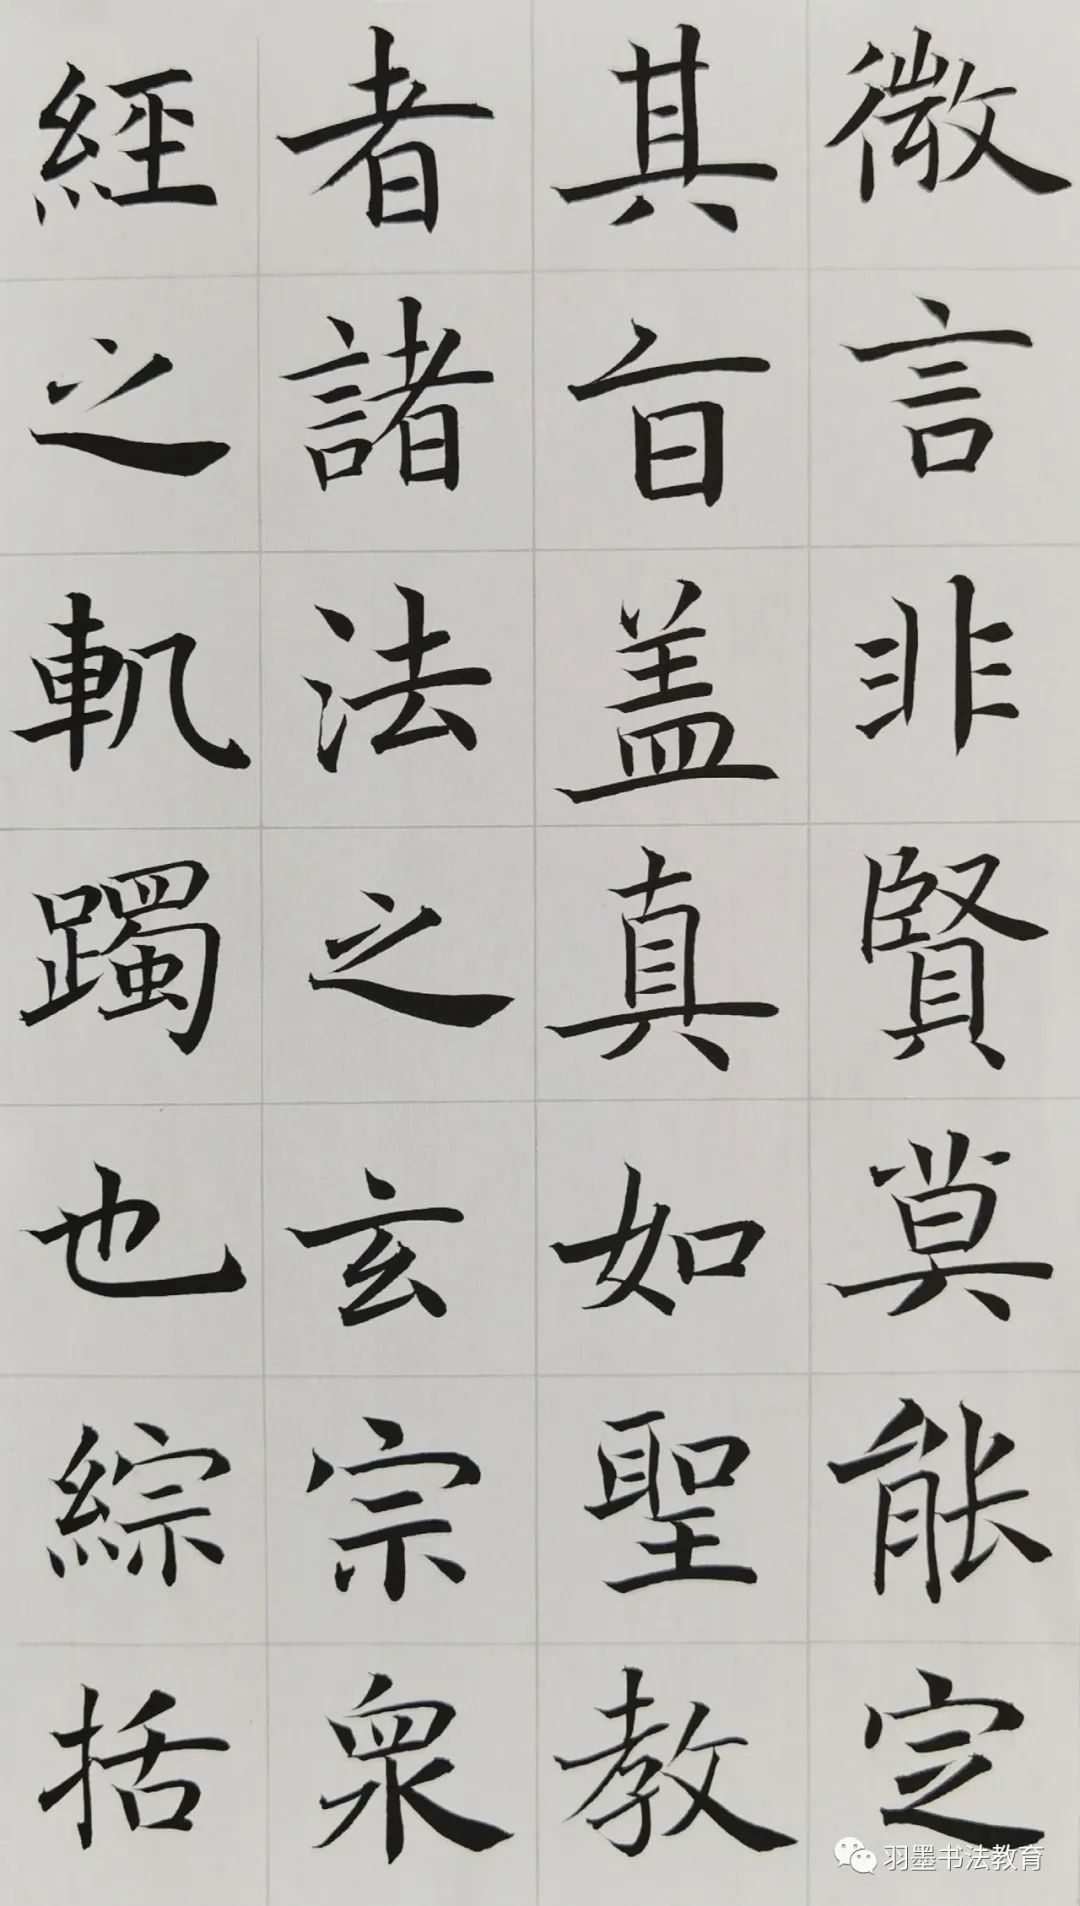 微言非賢莫能定
其旨盖真如聖教
者諸法之玄宗衆
經之軌躅也綜括
羽墨书法教育